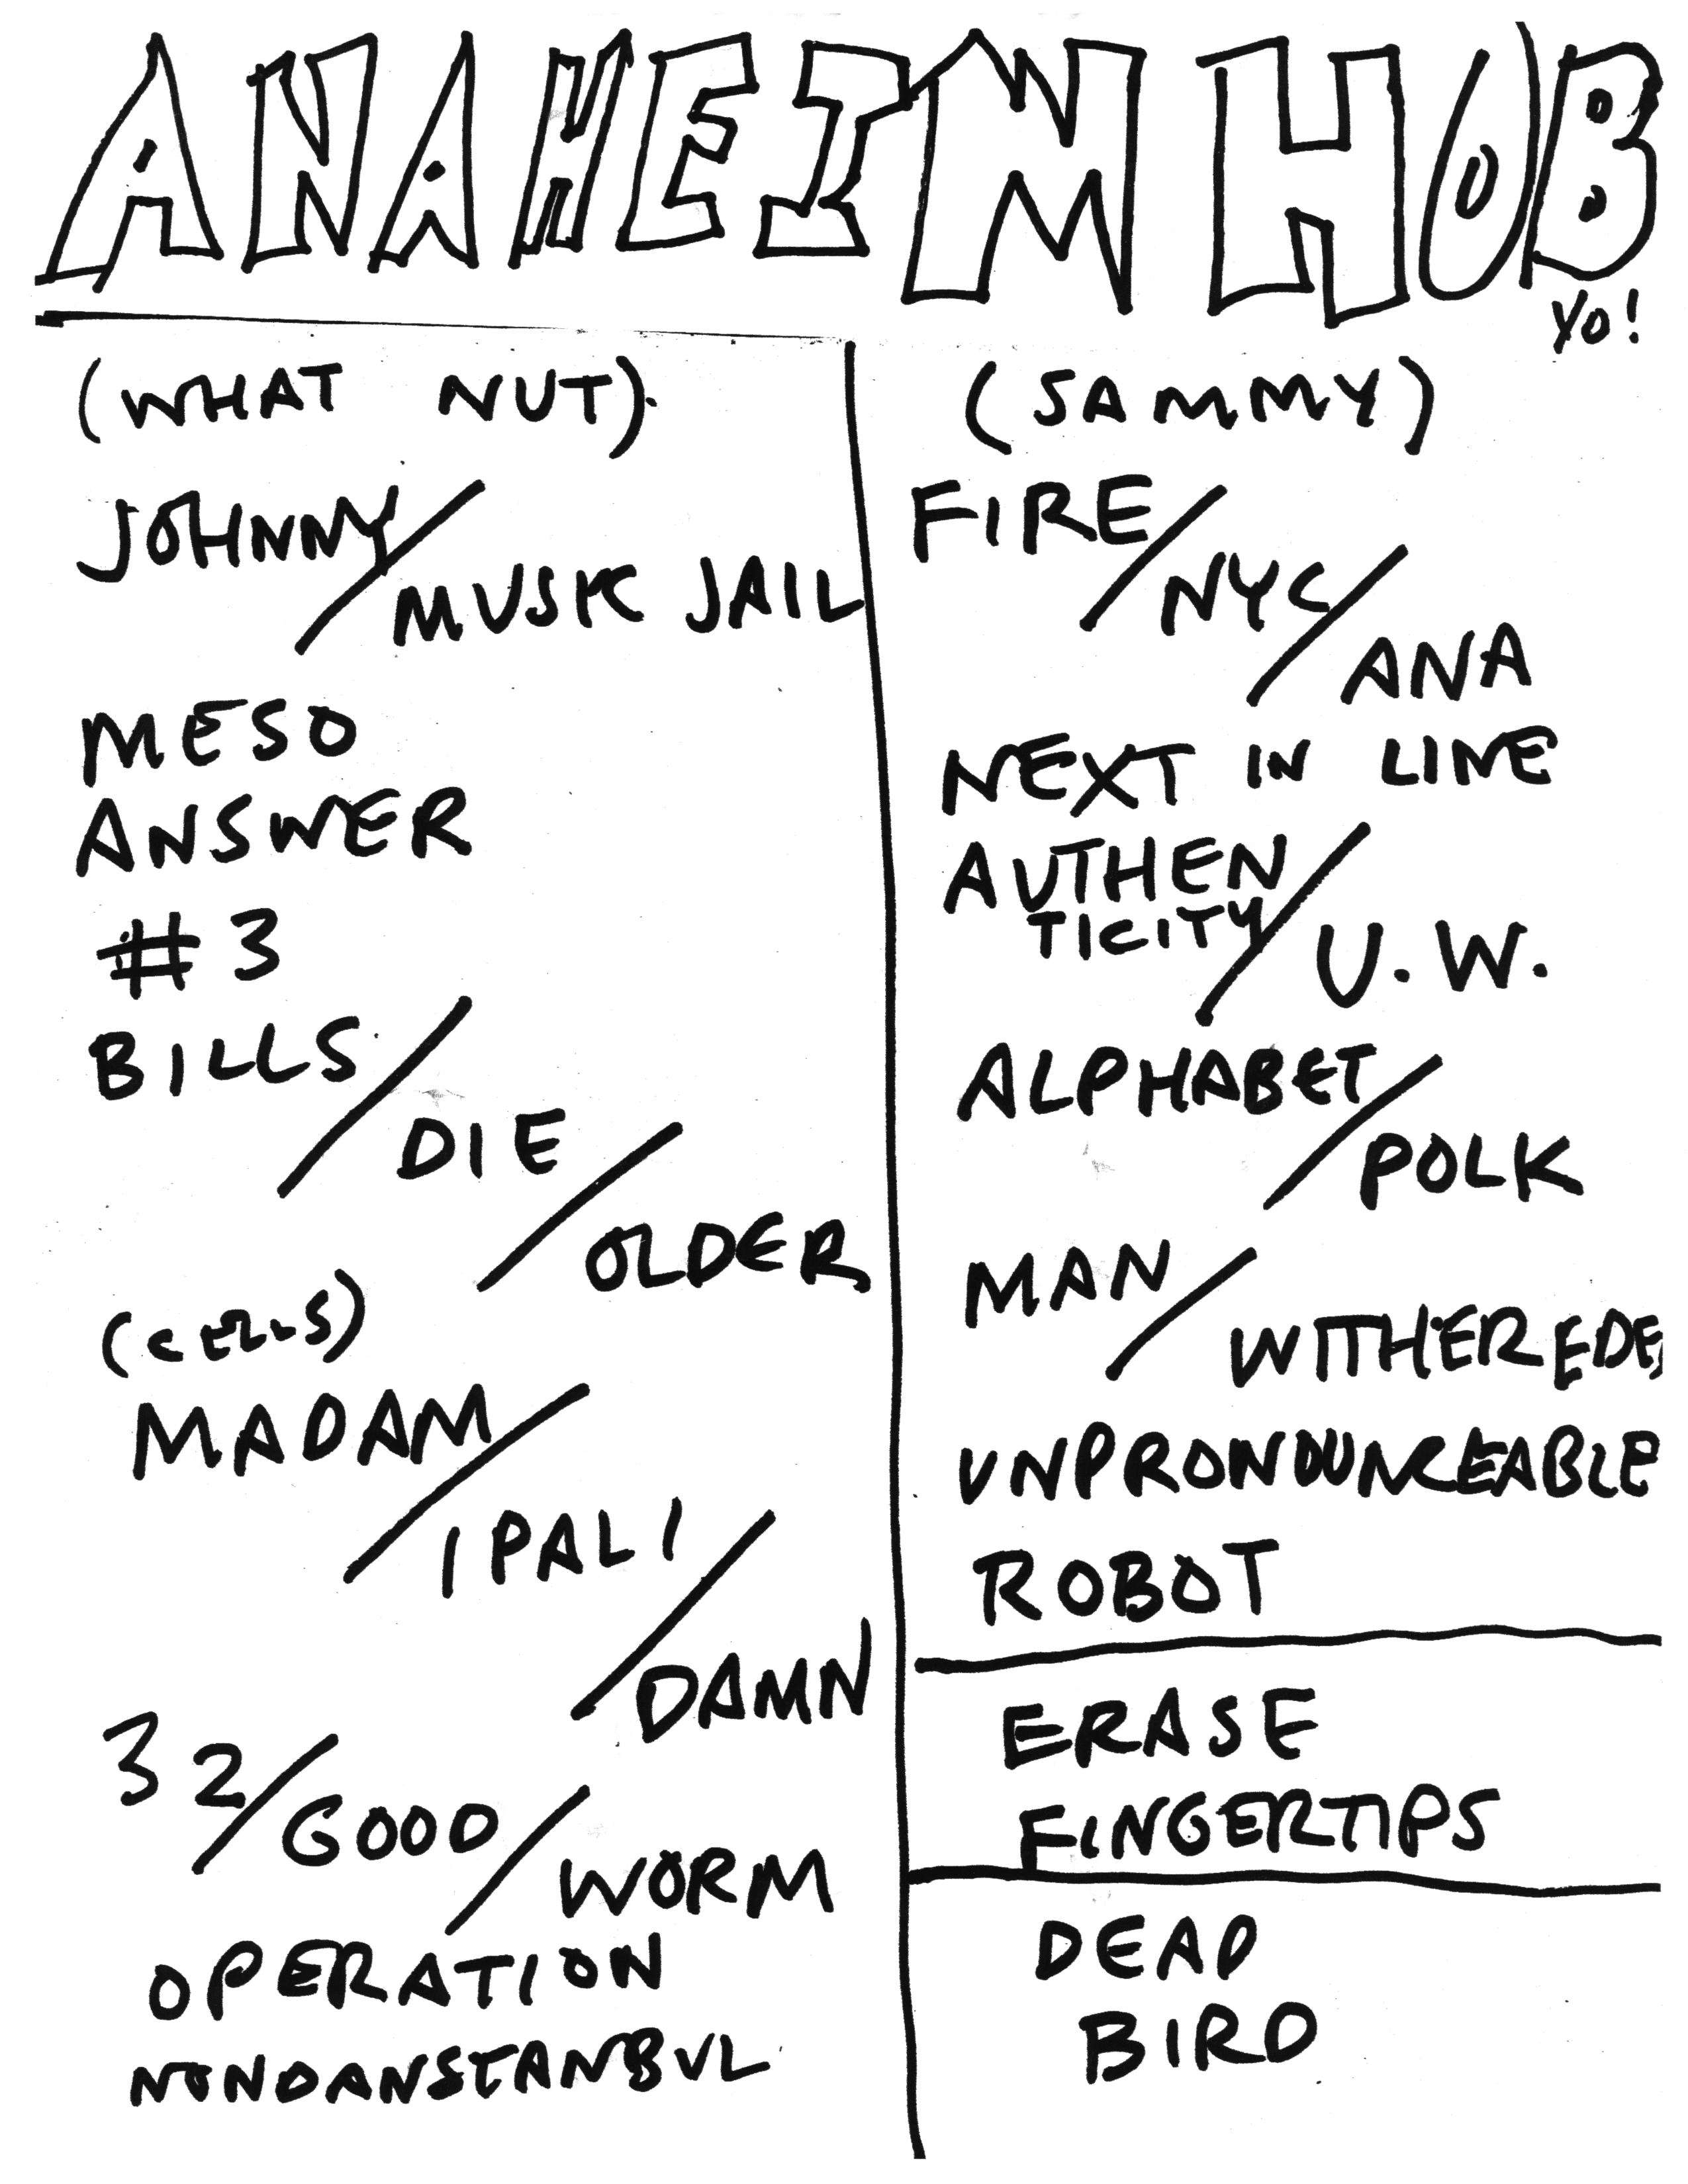 ANAHEIM HUB
YO!
(WHAT NUT).
JOHNNY/
MUSIC JAIL
MESO
ANSWER
#3
BILLS/
DIE/
OLDER
(CELLS)
MADAM/
IPALI/
DAMN
32/
GOOD/
WORM
OPERATION
NONOANSTANBUL
(SAMMY)
FIRE/
NYC/
ANA
NEXT IN LINE
AUTHEN
TICITY/
U.W.
ALPHABET/
POLK
MAN/
WITHEREDE
UNPRONOUNCEABLE
ROBOT
ERASE
FINGERTIPS
DEAD
BIRD